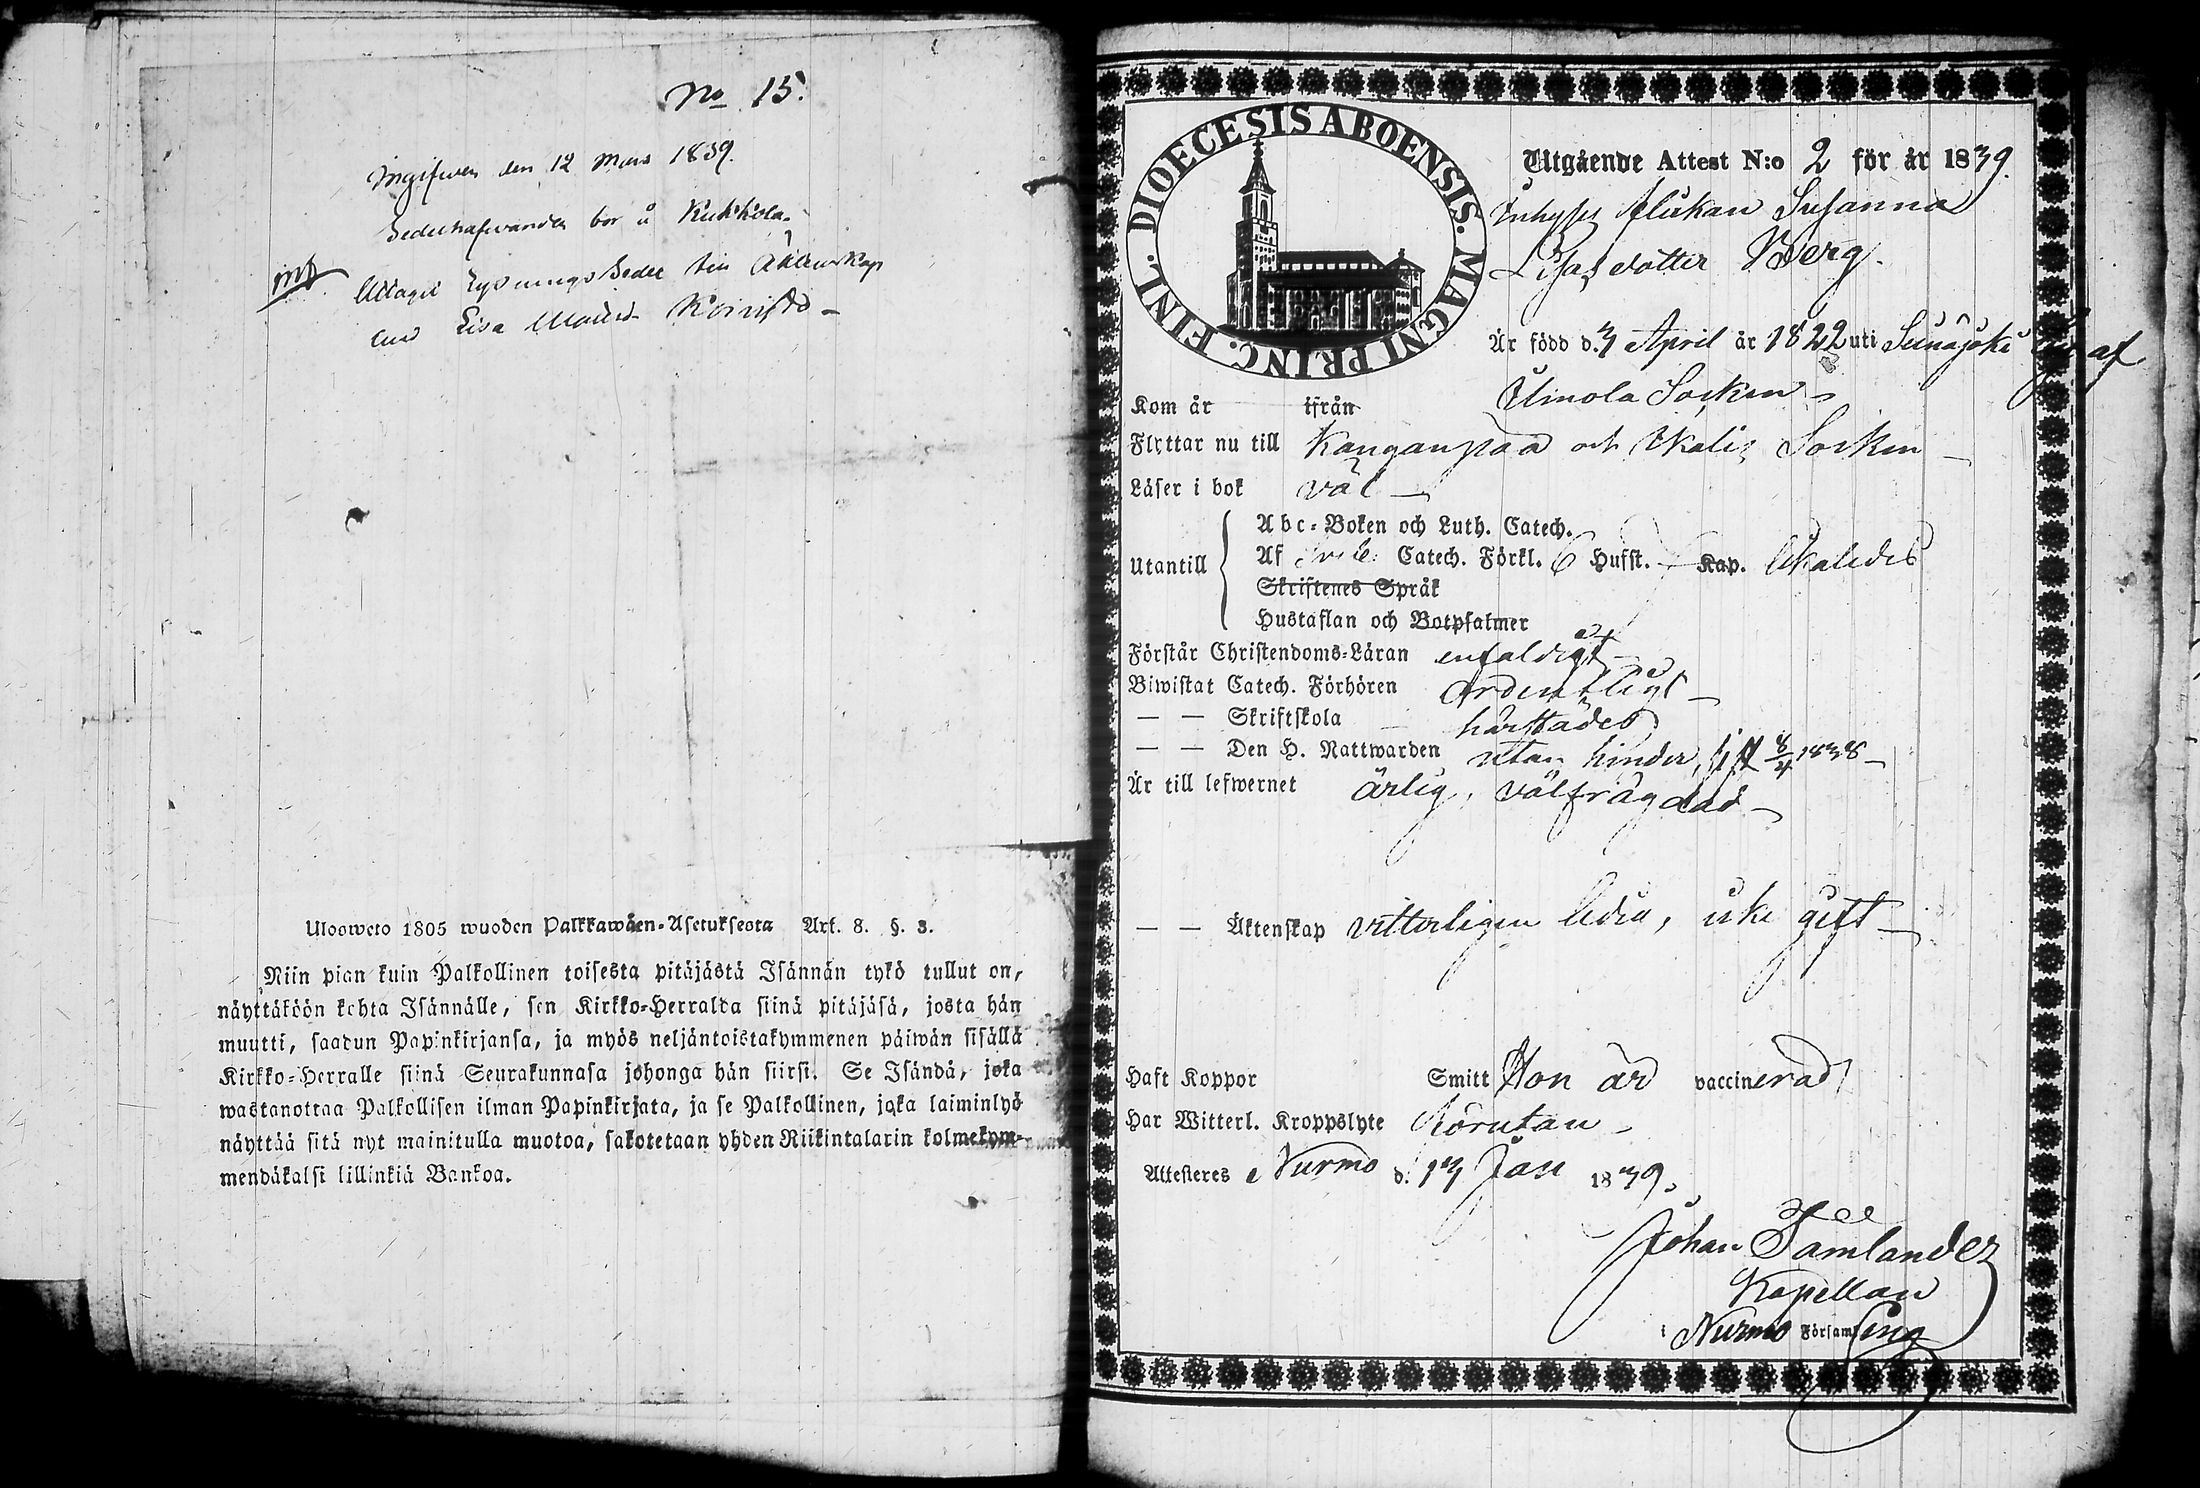 No 15.
Ingifwen den 12 Mars 1839.
Sedelhafwandn bor å Kukkola.
Uttagit Lysnings Sedel till Äktenskap
Lisa Koivisto
Ulosweto 1805 wuoden Palkkawäen-Asetuksesta Art. 8. §. 3.
Niin pian kuin Palkollinen toisesta pitäjästä Isännän tykö tullut on,
näyttäköön kohta Isännälle, sen Kirkko-Herralda siinä pitäjäsä, josta hän
muutti, saadun Papinkirjansa, ja myös neljäntoistakymmenen päiwän sisällä
Kirkko-Herralle siinä Seurakunnasa johonga hän siirsi. Se Isändä, joka
wastanottaa Palkollisen ilman Papinkirjata, ja se Palkollinen, joka laiminlyö
näyttää sitä nyt mainitulla muotoa, sakotetaan yhden Riikintalarin kolmekym-
mendäkaksi killinkiä Bankoa.
DIOECESIS ABOENSIS. MAGNI PRINC. FINL.
Utgående Attest N:o 2 för år 1839.
Inhyses flickan Susanna
Lisasdotter Berg.
Är född d. 3 April år 1822 uti Seinäjoki af
Ilmola Socken
Kom år ifrån
Flyttar nu till Kanganpää och Ikalis Socken
Läser i bok väl
Utantill
Abc-Boken och Luth. Catech.
Af Svib. Catech. Förkl. 6 Hufst. Kap.
Skriftenes Språk
Hustaflan och Botpsalmer
Förstår Christendoms-Läran enfaldigt
Biwistat Catech. Förhören ordentligt
— — Skriftskola härstädes
— — Den H. Nattwarden utan hinder, sist 8/4 1838
Är till lefwernet ärlig, välfrägdad
— — Äktenskap vitterligen ledig, icke gift
Haft Koppor Smitt Hon är vaccinerad
Har Witterl. Kroppslyte Förutan
Attesteres i Nurmo d. 13 Jan 1839.
Johan Tämlander
Kapellan
i Nurmo Församling